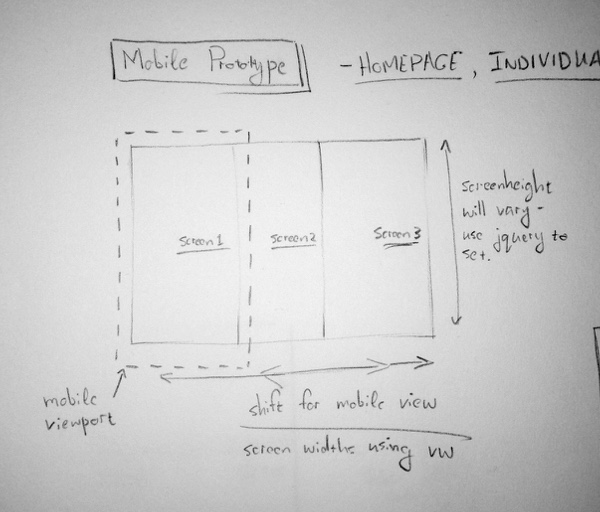 Mobile Prototype
- HOMEPAGE, INDIVIDUA
screen1
screen2
screen3
screenheight
will vary -
use jquery to
set.
mobile
viewport
shift for mobile view
screen widths using vw